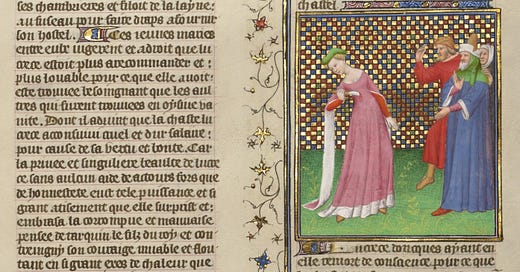 ses chambrieres et filoit de la layne
au fuseau pour faire draps a fournir
son hostel. Ces jeunes maries
entre eulx jugerent et adroit que lu
crece estoit plus a recommander et
plus louable pour ce que elle avoit
este trouvee besoingnant que les aul
tres qui furent trouvees en oysiue va
nite. Dont il aduint que la chaste lu
crece aconsuiui cruel et dur salaire
pour cause de sa vertu et bonte. Car
la privee et singuliere beaulte de lucre
ce sans aucun aide de atours fors que
de honnestete eut tele puissance et si
grant atisement que elle surprist et
embrasa la corrompue et mauuaise
pensee de tarquin le filz du roy et con
treingny son courage muable et flou
tant en si grant exces de chaleur que
chastel
Lucrece doncques ayant en
elle remort de conscience pour ce que